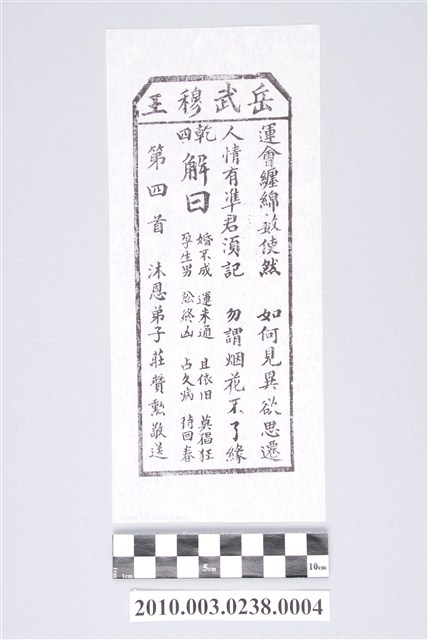 岳武穆王
運會纏綿数使然　如何見異欲思遷
人情有準君湏記　勿謂烟花不了緣
乾四
解曰
婚不成　運未通　且依旧　莫猖狂
孕生男　訟終凶　占久病　待回春
第四首　沐恩弟子莊贊勳敬送
1cm 5cm 10cm
2010.003.0238.0004